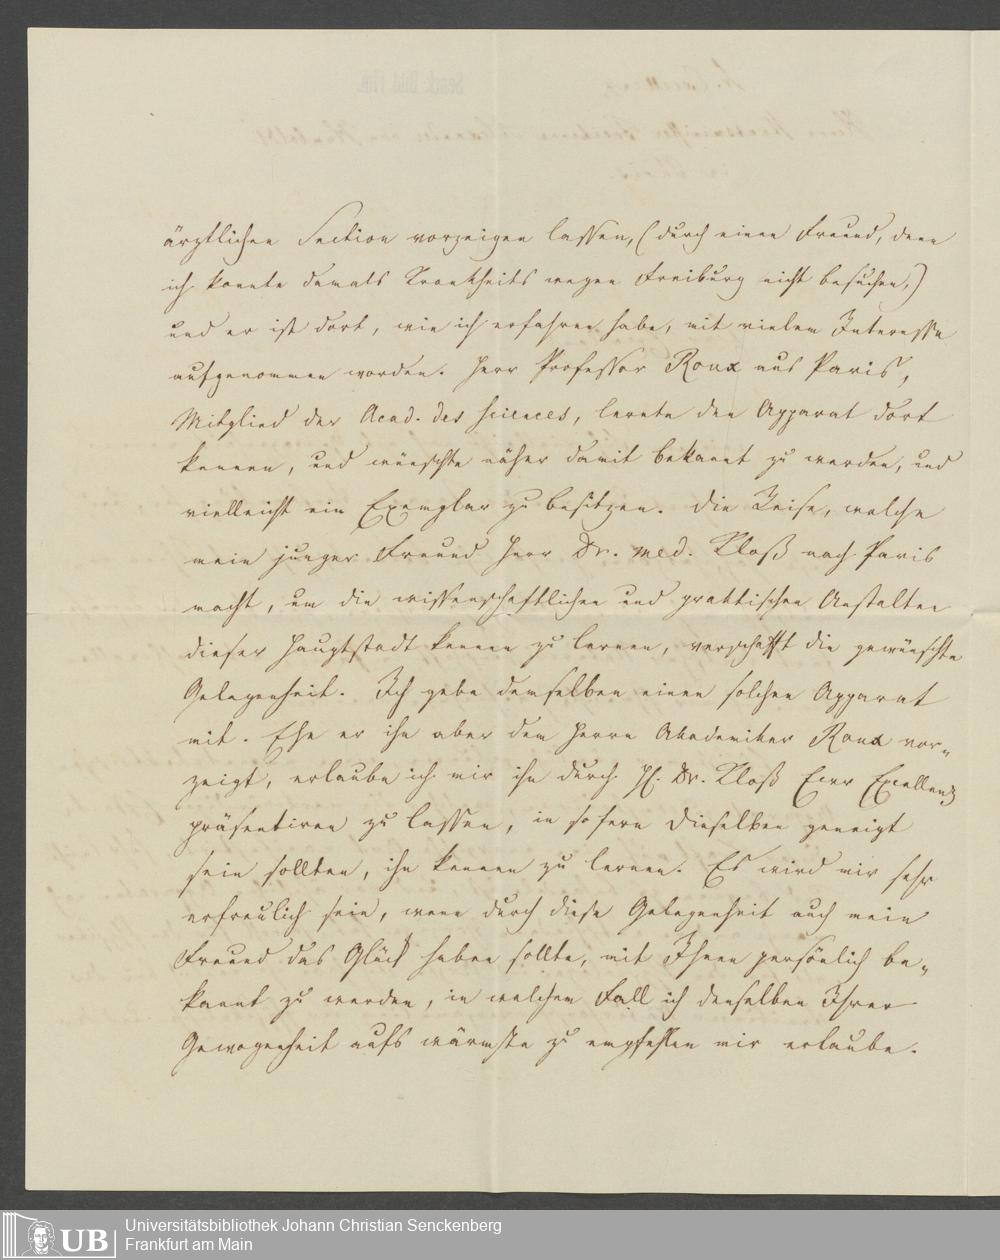 ärztlichen Section vorzeigen lassen, (durch einen Freund, denn
ich konnte damals Krankheits wegen Freiburg nicht besuchen,)
und er ist dort, wie ich erfahren habe, mit vielem Interesse
aufgenommen worden. Herr Professor Roux aus Paris,
Mitglied der Acad. des sciences, lernte den Apparat dort
kennen, und wünschte näher damit bekannt zu werden, und
vielleicht ein Exemplar zu besitzen. Die Reise, welche
mein junger Freund Herr Dr. med. Kloß nach Paris
macht, um die wissenschaftlichen und praktischen Anstalten
dieser Hauptstadt kennen zu lernen, verschafft die gewünschte
Gelegenheit. Ich gebe demselben einen solchen Apparat
mit. Ehe er ihn aber dem Herrn Akademiker Roux vor-
zeigt, erlaube ich mir ihn durch H. Dr. Kloß Euer Excellenz
präsentiren zu lassen, in sofern dieselben geneigt
sein sollten, ihn kennen zu lernen. Es wird mir sehr
erfreulich sein, wenn durch diese Gelegenheit auch mein
Freund das Glück haben sollte, mit Ihnen persönlich be-
kannt zu werden, in welchem Fall ich denselben Ihrer
Gewogenheit aufs wärmste zu empfehlen mir erlaube.
UB
Universitätsbibliothek Johann Christian Senckenberg
Frankfurt am Main